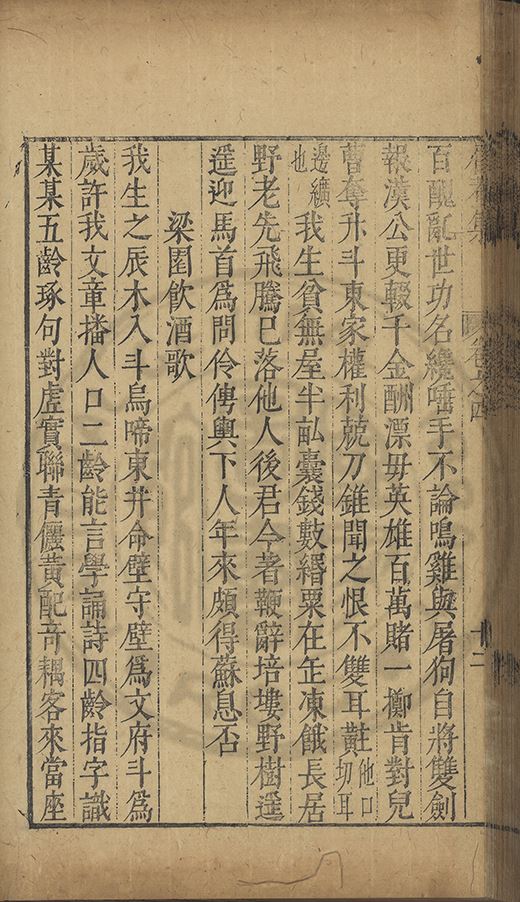 卷之四
十二
百醜亂世功名纔唾手不論鳴雞與屠狗自將雙劍
報漢公更輟千金酬漂毋英雄百萬賭一擲肯對兒
曹奪升斗東家權利兢刀錐聞之恨不雙耳黈他口切耳
邊纊也我生貧無屋半畆囊錢數緡粟在缶凍餓長居
野老先飛騰已落他人後君今著鞭辭培塿野樹遥
遥迎馬首爲問伶俜輿下人年來頗得蘇息否
梁園飲酒歌
我生之辰木入斗烏啼東井命壁守壁爲文府斗爲
歲許我文章播人口二齡能言學誦詩四齡指字識
某某五齡琢句對虛實聯青儷黃配竒耦客來當座